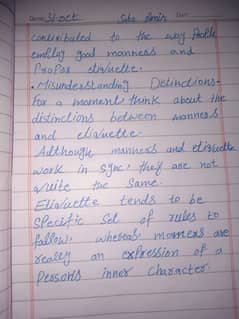 31-oct
contributed to the way People
employ good manners and
Proper etiquette.
• Misunderstanding Distinctions-
for a moment think about the
distinctions between manners
and etiquette.
Although manners and etiquette
work in sync, they are not
quite the same.
Etiquette tends to be
specific set of rules to
follow, whereas, manners are
really an expression of a
Person's inner character.